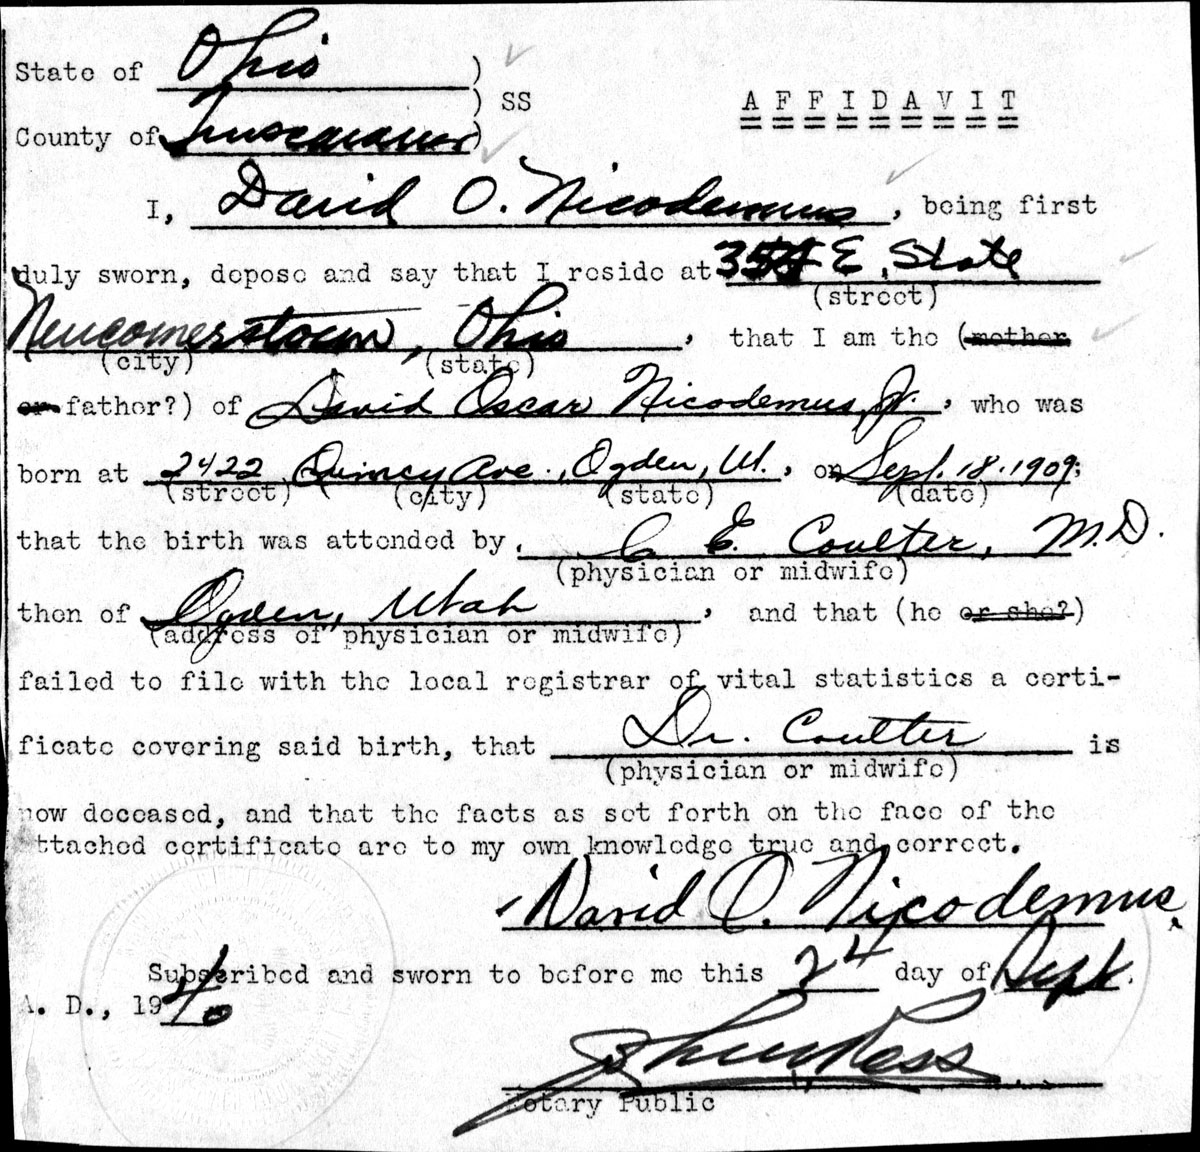 State of Ohio )
) SS
AFFIDAVIT
County of Tuscarawas )
I, David O. Nicodemus, being first
duly sworn, depose and say that I reside at E. State
(street)
Newcomerstown, Ohio, that I am the (mother
(city) (state)
or father?) of David Oscar Nicodemus, Jr., who was
born at 2422 Quincy Ave., Ogden, Ut., on Sept. 18. 1909;
(street) (city) (state) (date)
that the birth was attended by C. E. Coulter, M.D.
(physician or midwife)
then of Ogden, Utah, and that (he or she?)
(address of physician or midwife)
failed to file with the local registrar of vital statistics a certi-
ficate covering said birth, that Dr. Coulter is
(physician or midwife)
now deceased, and that the facts as set forth on the face of the
attached certificate are to my own knowledge true and correct.
David O. Nicodemus
Subscribed and sworn to before me this 24 day of Sept.
A. D., 1940
Notary Public